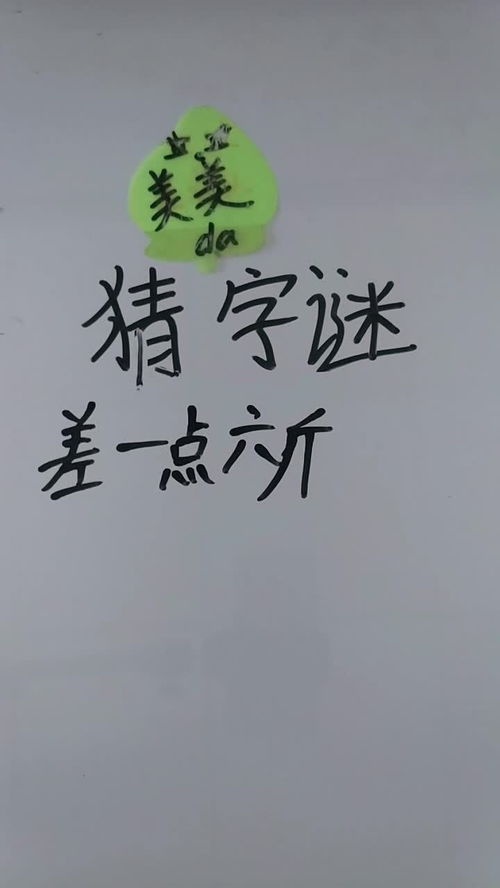 美美
da
猜字谜
差一点六斤